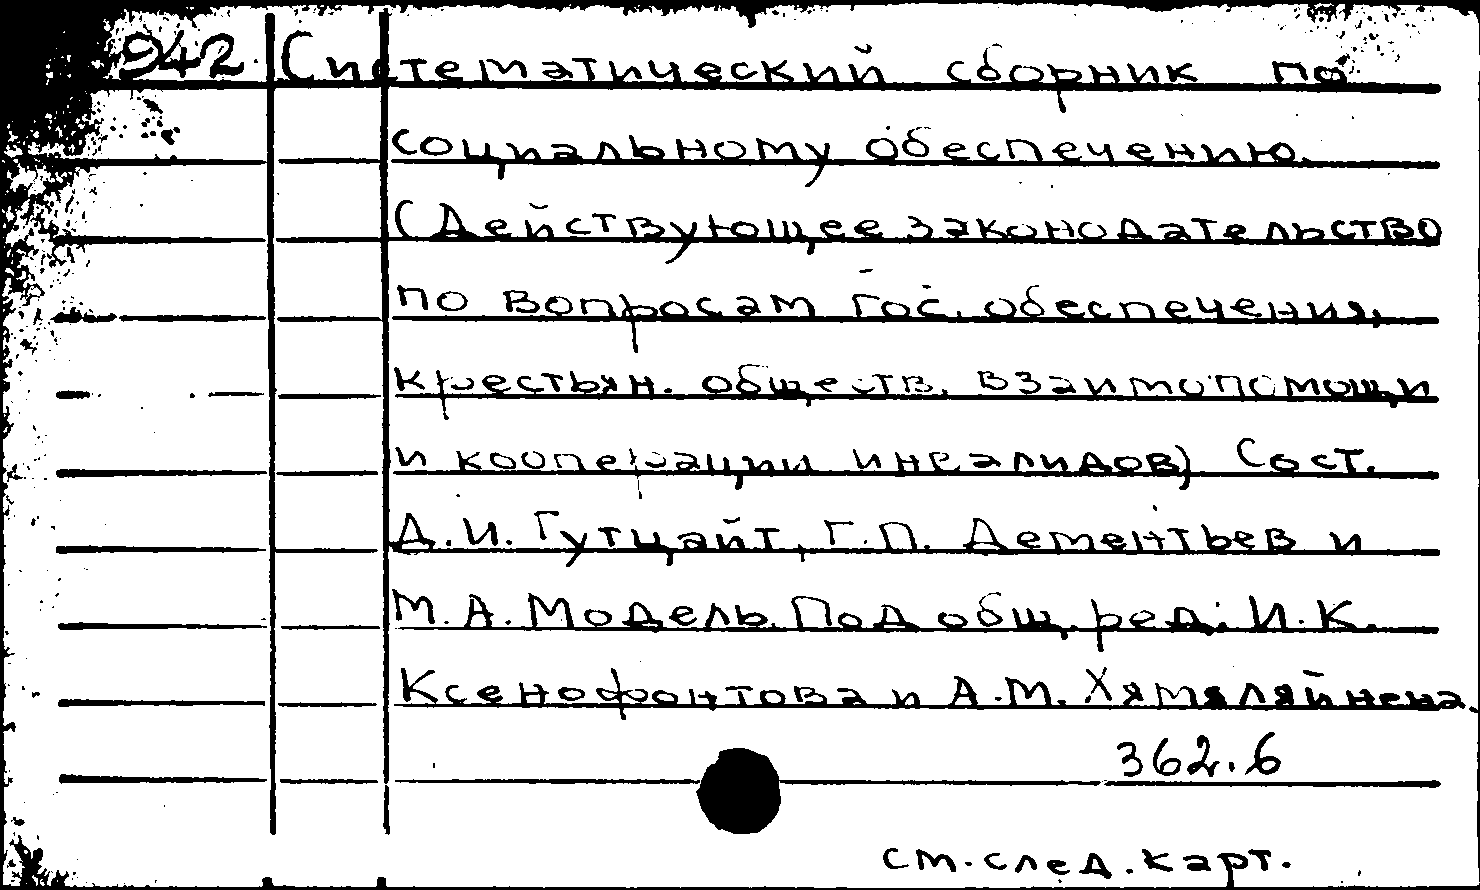 942 Систематический сборник по
социальному обеспечению.
(Действующее законодательство
по вопросам гос. обеспечения,
крестьян. обществ. взаимопомощи
и кооперации инвалидов) Сост.
Д.И. Гутцайт, Г.П. Дементьев и
М.А. Модель. Под общ. ред. И.К.
Ксенофонтова и А.М. Хямяляйнена.
362.6
см. след. карт.